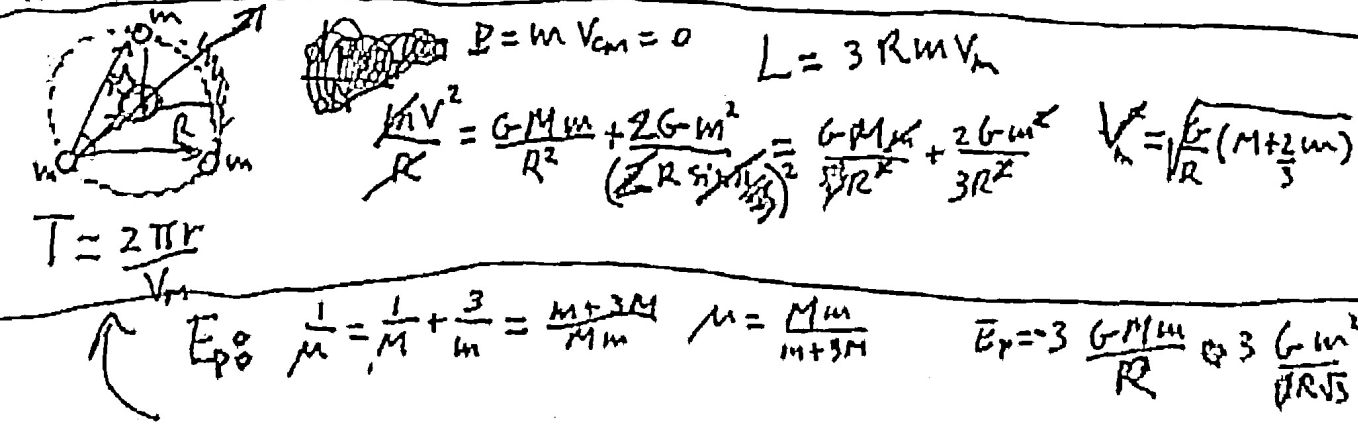 m P = m V_cm = 0 L = 3 R m V_m
R m m
V² / R = GMm / R² + 2Gm² / (2R sin)² = GMm / R² + 2Gm² / 3R² V_m = √(G/R (M + 2/3 m))
T = 2πr / V_m
E_p: 1/μ = 1/M + 3/m = m+3M / Mm μ = Mm / m+3M E_p = -3 GMm / R 3 Gm² / R√3